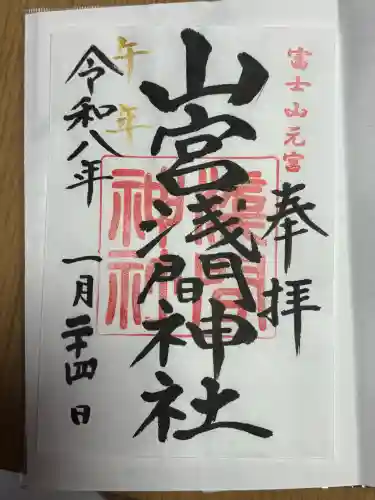 富士山元宮
奉拝
山宮浅間神社
午年
令和八年
一月二十四日
浅間
神社